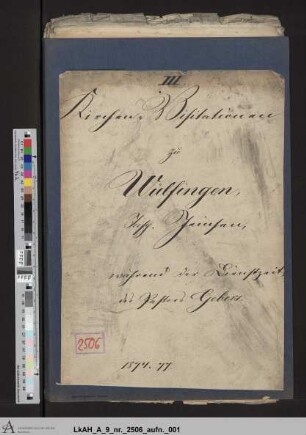 III
Kirchen-Visitationen
zu
Wülfingen,
Insp. Jeinsen,
während der Dienstzeit
des Pastors
2506
1874. 77
LkAH_A_9_nr._2506_aufn._001